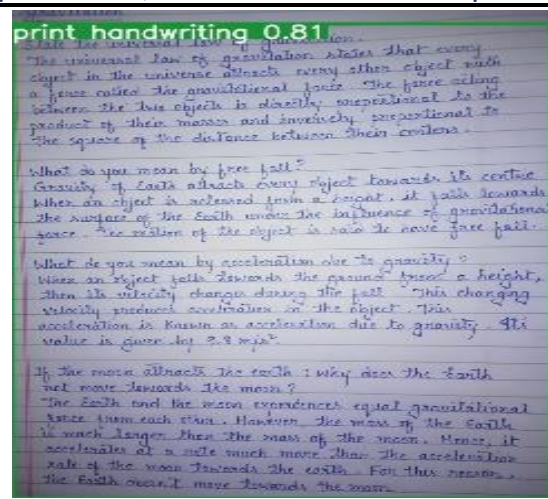 gravitation
print handwriting 0.81
State the universal law of gravitation.
The universal law of gravitation states that every
object in the universe attracts every other object with
a force called the gravitational force. The force acting
between the two objects is directly proportional to the
product of their masses and inversely proportional to
the square of the distance between their centers.
What do you mean by free fall?
Gravity of Earth attracts every object towards its centre
When an object is released from a height, it falls towards
the surface of the Earth under the influence of gravitational
force. The motion of the object is said to have free fall.
What do you mean by acceleration due to gravity?
When an object falls towards the ground from a height,
then its velocity changes during the fall. This changing
velocity produces acceleration in the object. This
acceleration is known as acceleration due to gravity. Its
value is given by 9.8 m/s².
If the moon attracts the earth : why does the Earth
not move towards the moon?
The Earth and the moon experiences equal gravitational
force from each other. However the mass of the Earth
is much larger then the mass of the moon. Hence, it
accelerates at a rate much more than the acceleration
rate of the moon towards the earth. For this reason,
the Earth doesn't move towards the moon.